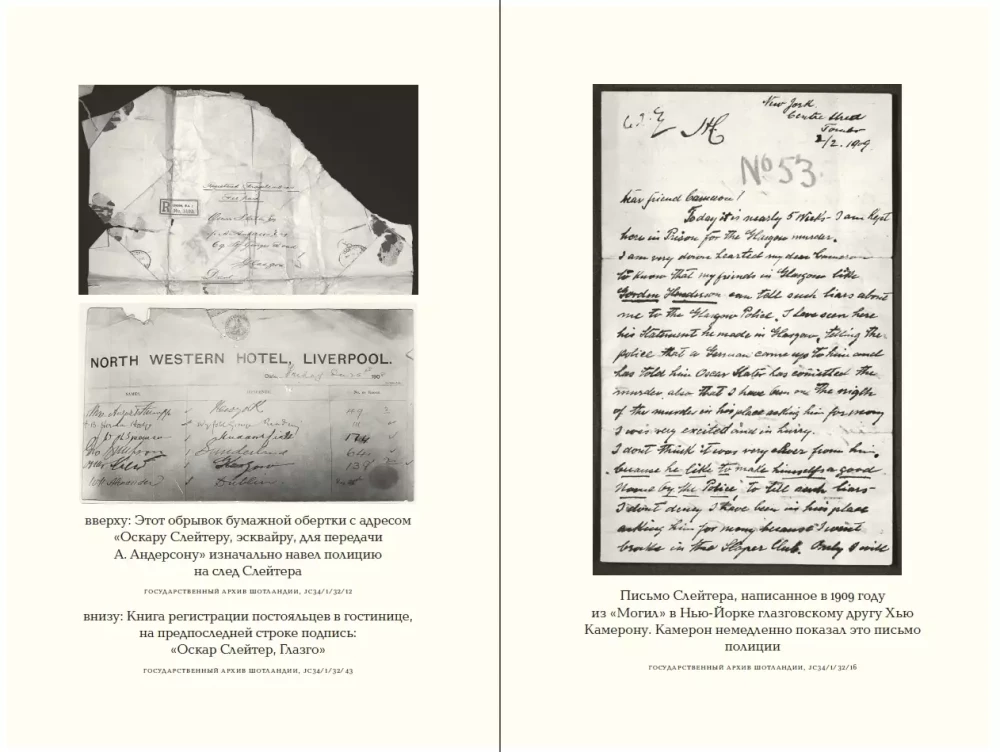 R
NORTH WESTERN HOTEL, LIVERPOOL.
NAMES.
Glasgow
Dublin
вверху: Этот обрывок бумажной обертки с адресом
«Оскару Слейтеру, эсквайру, для передачи
А. Андерсону» изначально навел полицию
на след Слейтера
ГОСУДАРСТВЕННЫЙ АРХИВ ШОТЛАНДИИ, JC34/1/32/12
внизу: Книга регистрации постояльцев в гостинице,
на предпоследней строке подпись:
«Оскар Слейтер, Глазго»
ГОСУДАРСТВЕННЫЙ АРХИВ ШОТЛАНДИИ, JC34/1/32/43
New York
Centre Street
Tombs
2/2. 1909
No 53
Dear friend Cameron!
Today it is nearly 5 Weeks - I am kept
here in Prison for the Glasgow murder.
I am very down hearted my dear Cameron
to know that my friends in Glasgow like
Gordon Henderson can tell such liars about
me to the Glasgow Police. I have seen here
his Statement he made in Glasgow, telling the
police that a German came up to him and
has told him Oscar Slater has comitted the
murder also that I have been on the nigth
of the murder in his place asking him for mony
I was very excited and in hurry.
I dont think it was very clever from him,
because he like to make himself a good
Name by the Police, to tell such liars-
I dont deney I have been in his place
asking him for mony because I went
broke in the Sloper Club. Only I will
Письмо Слейтера, написанное в 1909 году
из «Могил» в Нью-Йорке глазговскому другу Хью
Камерону. Камерон немедленно показал это письмо
полиции
ГОСУДАРСТВЕННЫЙ АРХИВ ШОТЛАНДИИ, JC34/1/32/16